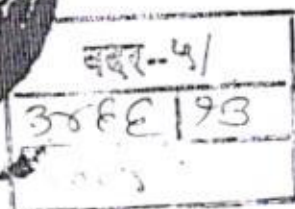 बदर--५/
३४६६|१३